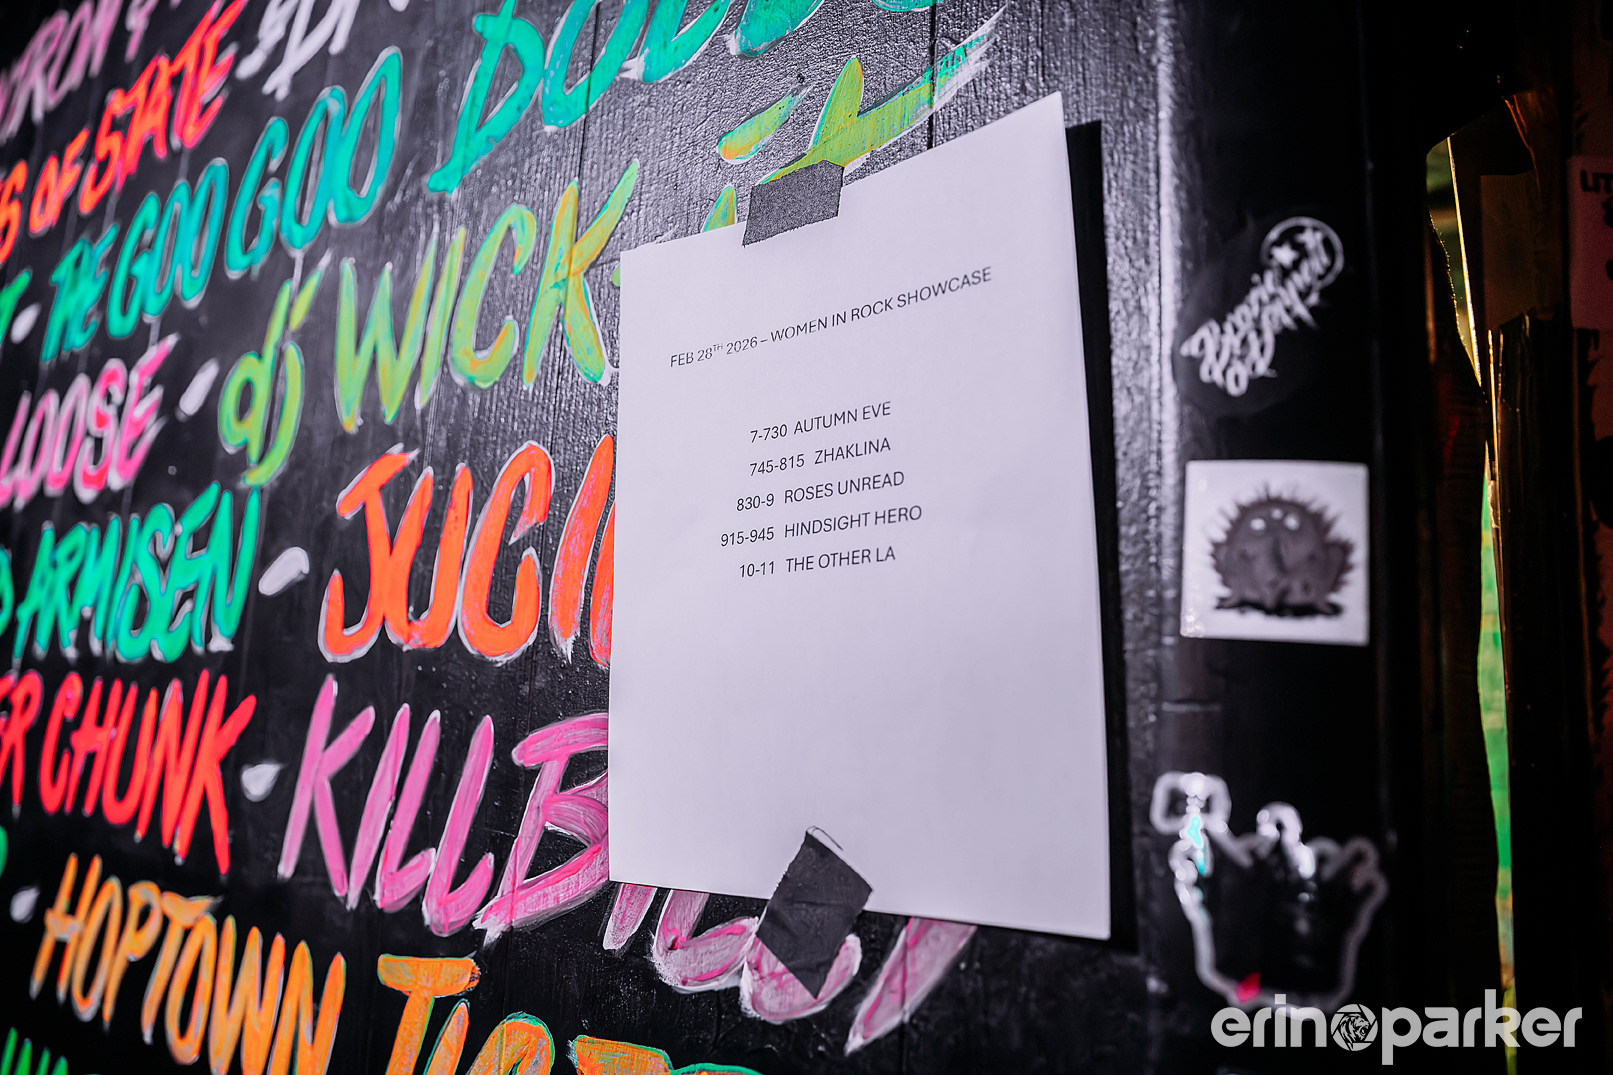 OF STATE
THE GOO GOO DOLLS
LOOSE · dj WICK-it
ARMISEN · JUCI
CHUNK · KILLBILLY
HOPTOWN
FEB 28TH 2026 – WOMEN IN ROCK SHOWCASE
7-730 AUTUMN EVE
745-815 ZHAKLINA
830-9 ROSES UNREAD
915-945 HINDSIGHT HERO
10-11 THE OTHER LA
erin parker